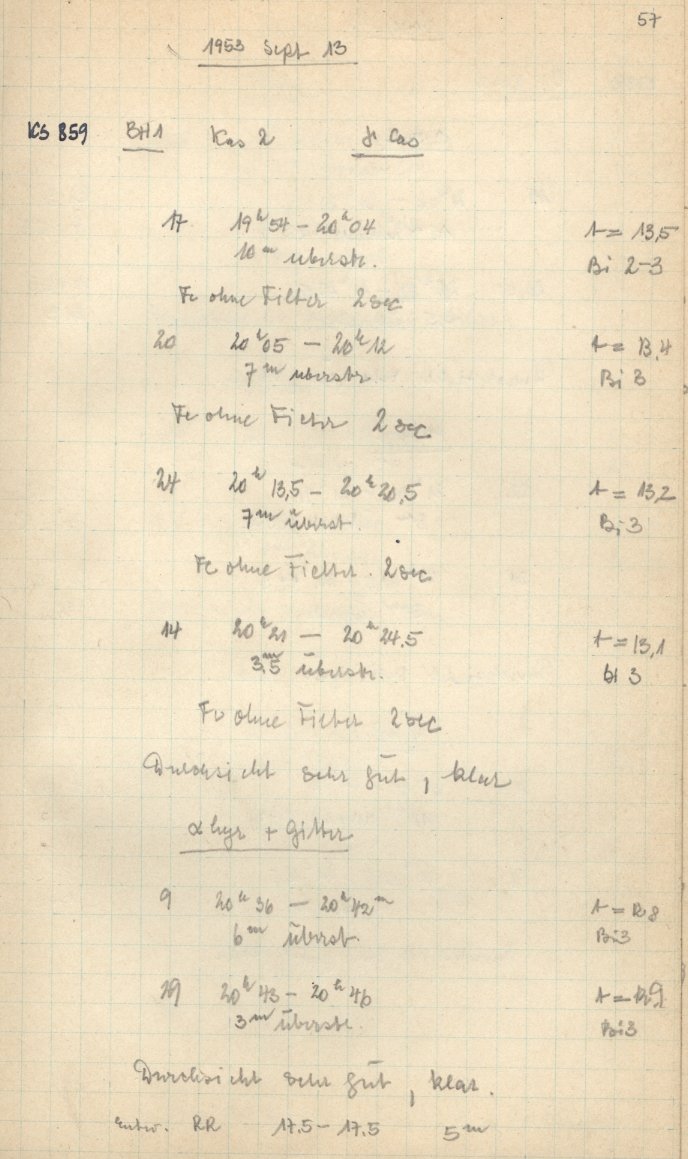 57
1953 Sept 13
KS 859 BH1 Kas 2 γ Cas
17 19ʰ54 – 20ʰ04 t = 13,5
10ᵐ überstr. Bi 2-3
Fe ohne Filter 2 sec
20 20ʰ05 – 20ʰ12 t = 13,4
7ᵐ überstr Bi 3
Fe ohne Filter 2 sec
24 20ʰ13,5 – 20ʰ20,5 t = 13,2
7ᵐ überst. Bi 3
Fe ohne Filter. 2 sec
14 20ʰ21 – 20ʰ24,5 t = 13,1
3,5ᵐ überstr. Bi 3
Fe ohne Filter 2 sec
Durchsicht sehr gut, klar
α Lyr + Gitter
9 20ʰ36 – 20ʰ42ᵐ t = 12,8
6ᵐ überst. Bi 3
20ʰ43 – 20ʰ46 t =
3ᵐ überstr. Bi 3
Durchsicht sehr gut, klar.
Entw. RR 17.5 – 17.5 5ᵐ